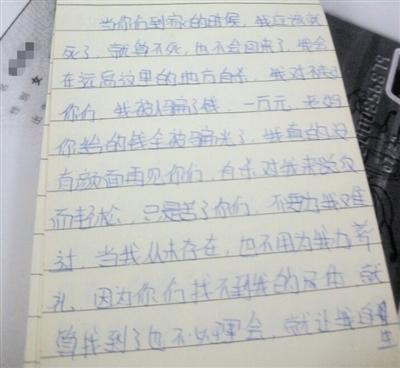 当你们到家的时候,我应该就
死了,就算不死,也不会回来了,我会
在远离这里的地方自杀,我对不起
你们,我被人骗了钱,一万元,老妈
你给的钱全被骗光了,我真的没
有颜面再见你们,自杀对我来说反
而轻松,只是苦了你们,不要为我难
过,当我从未存在,也不用为我办葬
礼,因为你们找不到我的尸体,就
算找到了也不必理会,就让我自
生